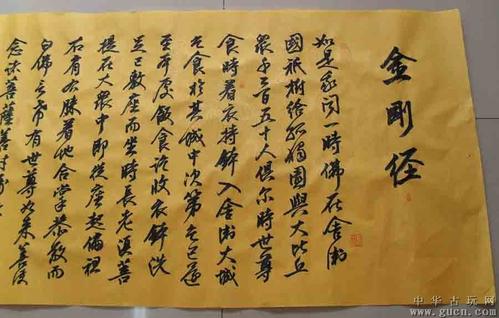 金剛经
如是我闻一時佛在舍衛
國祇樹給孤獨園與大比丘
眾千二百五十人俱尔時世尊
食時着衣持鉢入舍衛大城
乞食於其城中次第乞已還
至本處飯食訖收衣鉢洗
足已敷座而坐時長老湏菩
提在大眾中即從座起偏袒
右肩右膝着地合掌恭敬而
白佛言希有世尊如来善護
念諸菩薩善付
中华古玩网
www.gucn.com